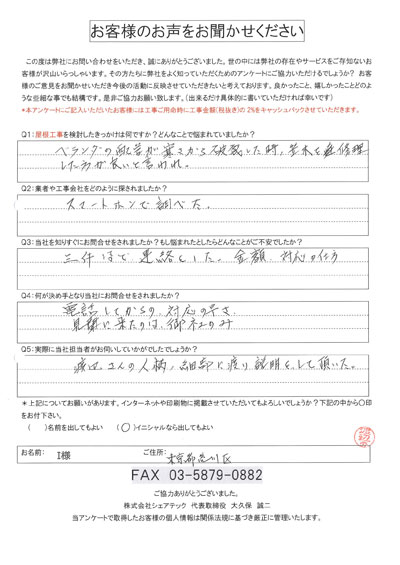 お客様のお声をお聞かせください
この度は弊社にお問い合わせをいただき、誠にありがとうございました。世の中には弊社の存在やサービスをご存知ないお
客様が沢山いらっしゃいます。その方たちに弊社をよく知っていただくためのアンケートにご協力いただけるでしょうか？ お客
様のご意見をお聞かせいただき今後の活動に反映させていただきたいと考えております。良かったこと、嬉しかったことどのよ
うな些細な事でも結構です。是非ご協力お願い致します。（出来るだけ具体的に書いていただければ幸いです）
*本アンケートにご記入いただいたお客様には工事ご用命時に工事金額（税抜き）の2%をキャッシュバックさせていただきます。
Q1:屋根工事を検討したきっかけは何ですか？どんなことで悩まれていましたか？
ベランダの配管が寒さから破裂した時、並木を修理
した方が良いと言われ。
Q2：業者や工事会社をどのように探されましたか？
スマートホンで調べた。
Q3：当社を知りすぐにお問合せをされましたか？もし悩まれたとしたらどんなことがご不安でしたか？
三件ほど連絡をした。金額、対応の仕方
Q4：何が決め手となり当社にお問合せをされましたか？
電話してからの、対応の早さ
見積に来たのは、御社のみ
Q5：実際に当社担当者がお伺いしていかがでしたでしょうか？
渡辺さんの人柄、細部に渡り説明をして頂いた。
*上記についてお願いがあります。インターネットや印刷物に掲載させていただいてもよろしいでしょうか？下記の中から〇印
をお付下さい。
（　）名前を出してもよい （〇）イニシャルなら出してもよい
お名前： I様 ご住所： 東京都荒川区
FAX 03-5879-0882
ご協力ありがとうございました。
株式会社シェアテック 代表取締役 大久保 誠二
当アンケートで取得したお客様の個人情報は関係法規に基づき厳正に管理いたします。